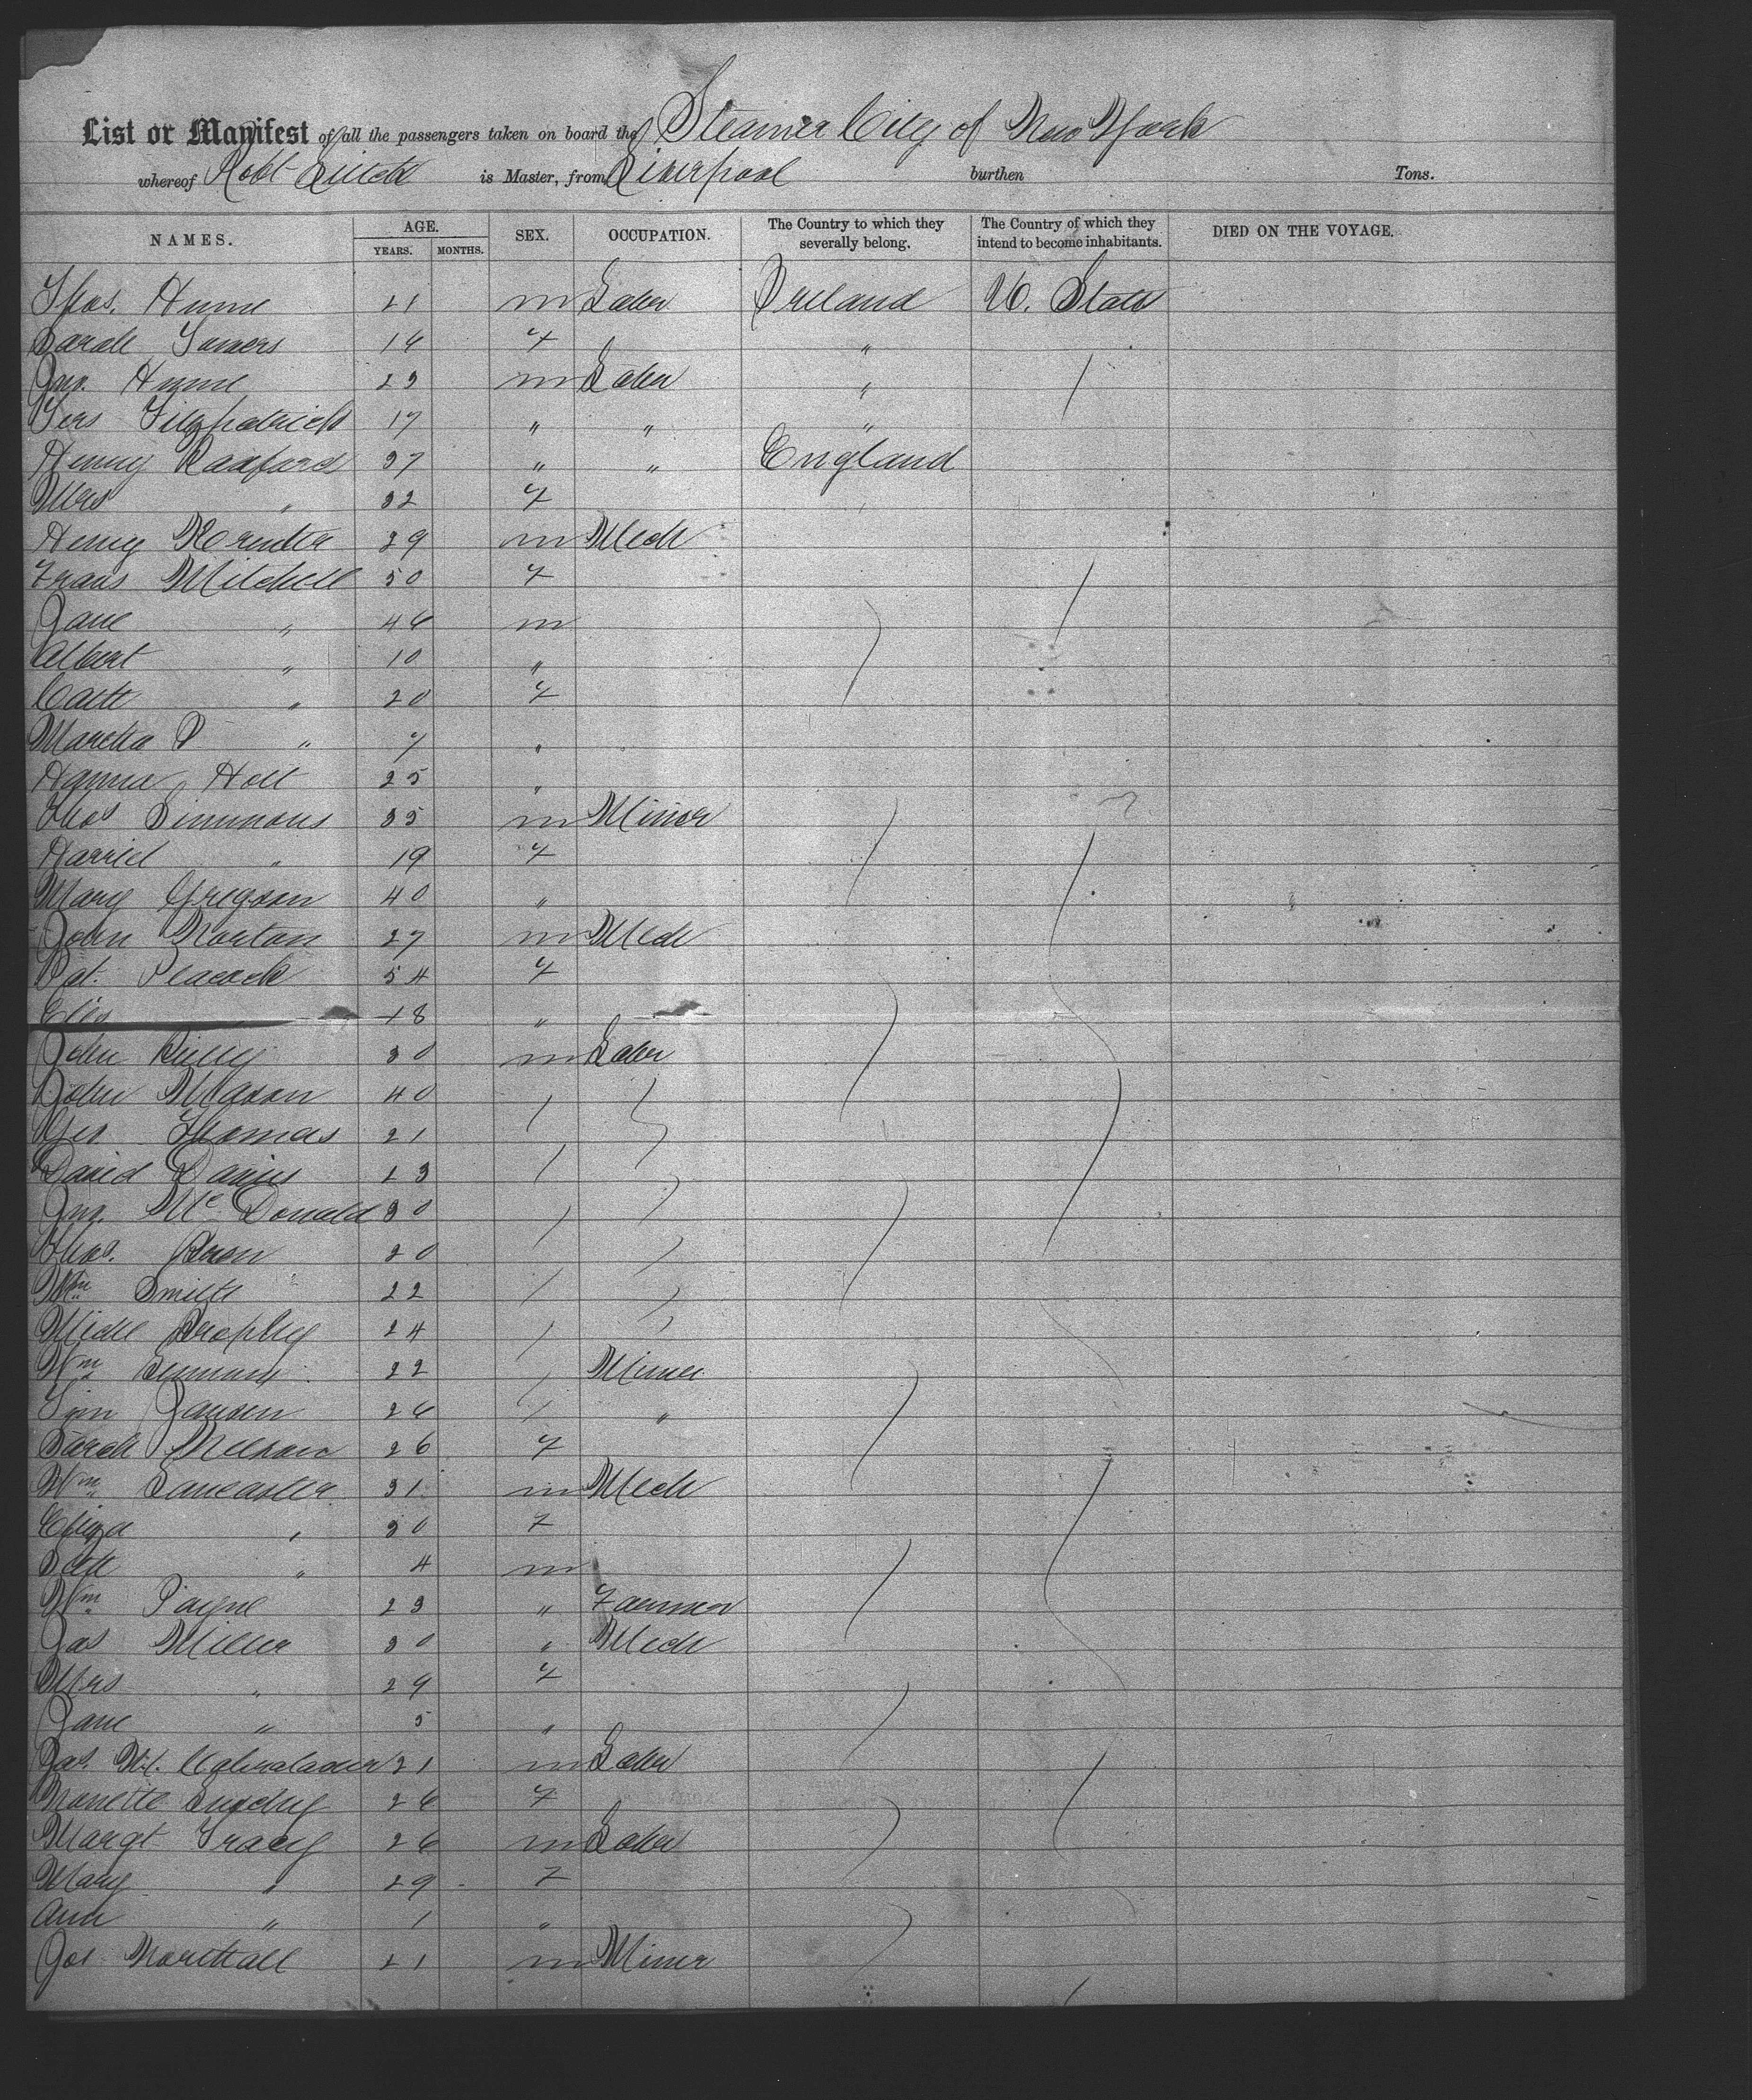 List or Manifest of all the passengers taken on board the Steamer City of New York
whereof Robt Leitch is Master, from Liverpool burthen Tons.
NAMES. AGE. YEARS. MONTHS. SEX. OCCUPATION. The Country to which they severally belong. The Country of which they intend to become inhabitants. DIED ON THE VOYAGE.
Thos. Hume 21 m Labor Ireland U. States
Sarah Somers 16 f "
Jno. Hume 23 m Labor "
Fitzpatrick 17 " " "
Henry 37 " " England
Mrs " 32 f
Henry 29 m Mech
Frans Mitchell 50 f
Jane " 46 m
Albert " 10 "
Cath " 20 f
Martha P " 7 "
Hanna Holt 25 "
Thos Simmons 35 m Miner
Harriet " 19 f
Mary Gregson 40 "
John Norton 27 m Mech
Pat. Peacock 54 f
18 "
John 30 m Labor
John Mason 40
Geo Thomas 21
David Davies 23
Jno. McDonald 30
Thos. 20
Wm Smith 22
Mich Brophy 24
Wm 22 Miner
Jansen 26 "
Sarah 26 f
Wm Lancaster 31 m Mech
Eliza " 30 f
" 4 m
Wm Payne 23 " Farmer
Jas Miller 30 " Mech
Mrs " 29 f
Jane " 5 "
Jas. 21 m Labor
26 f
Margt Tracy 26 m Labor
Mary " 29 f
Ann " 1 "
Jos 21 m Miner